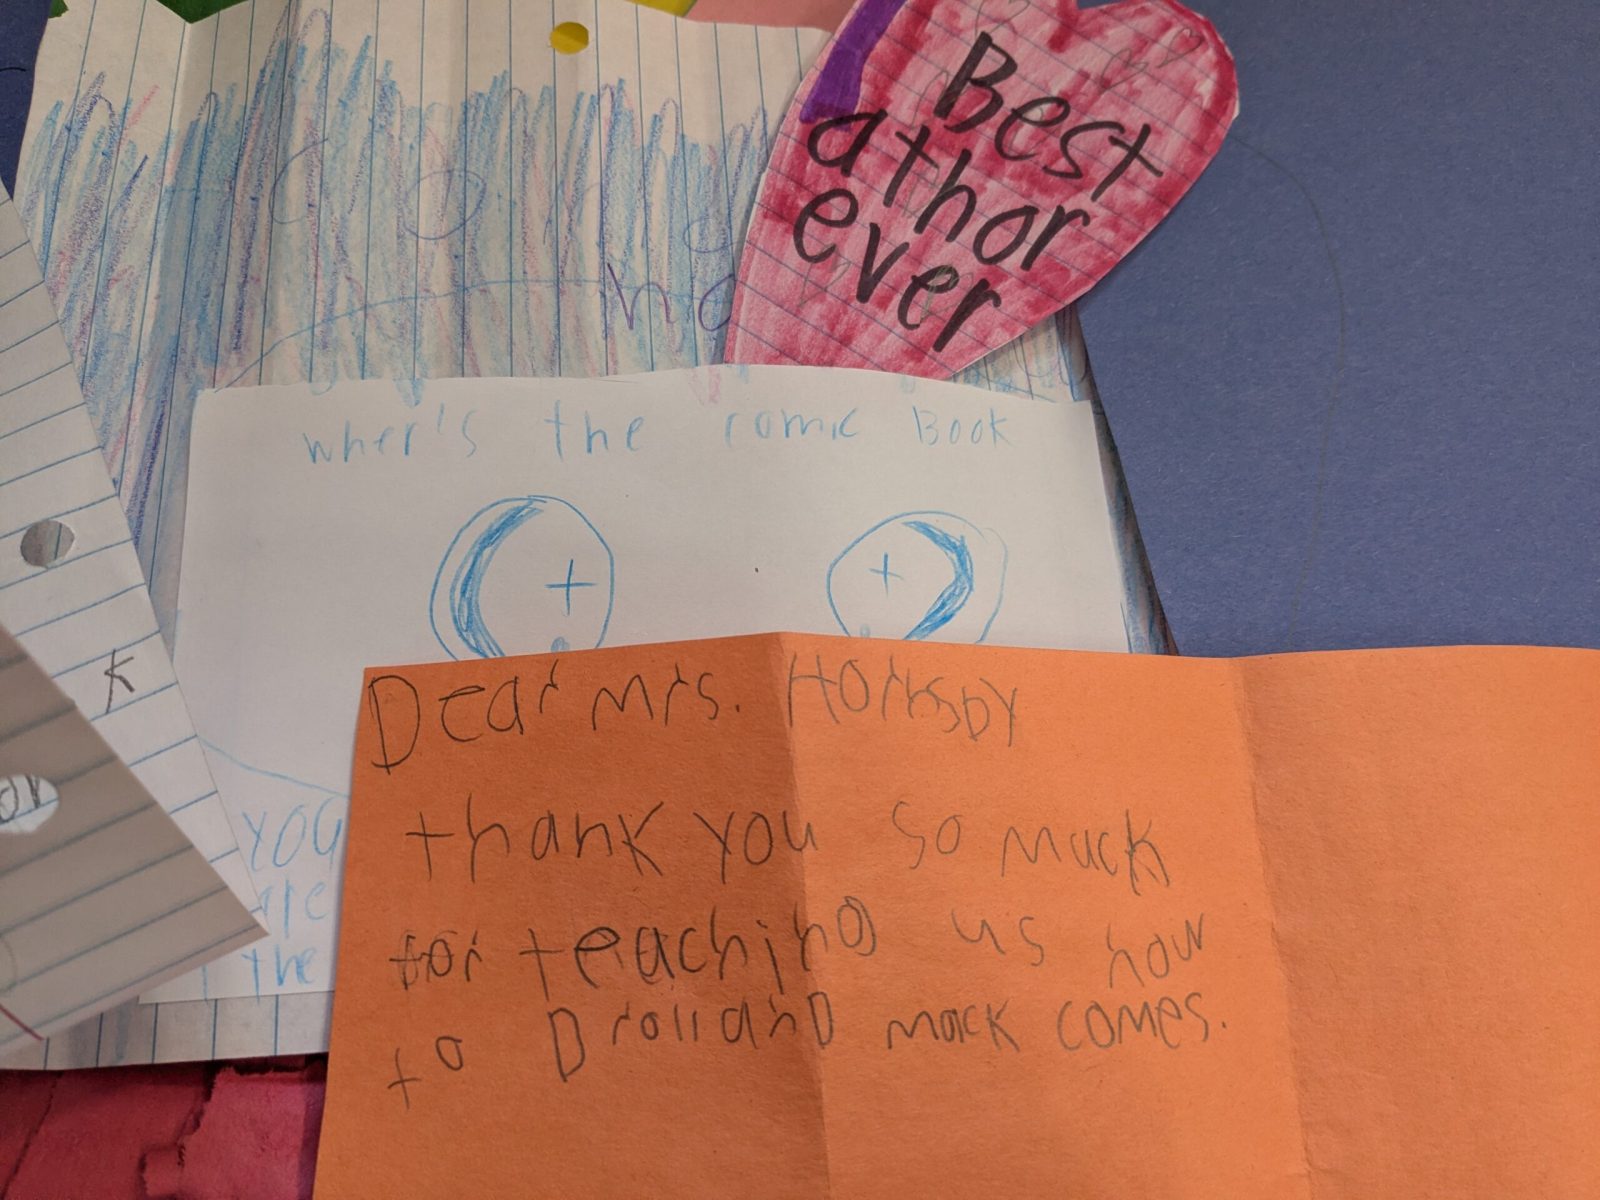 Best
athor
ever
wher's the comic Book
YOU
are
the
K
or
Dear mrs. Hornsby
thank you so muck
for teaching us how
to Drall and mack comes.